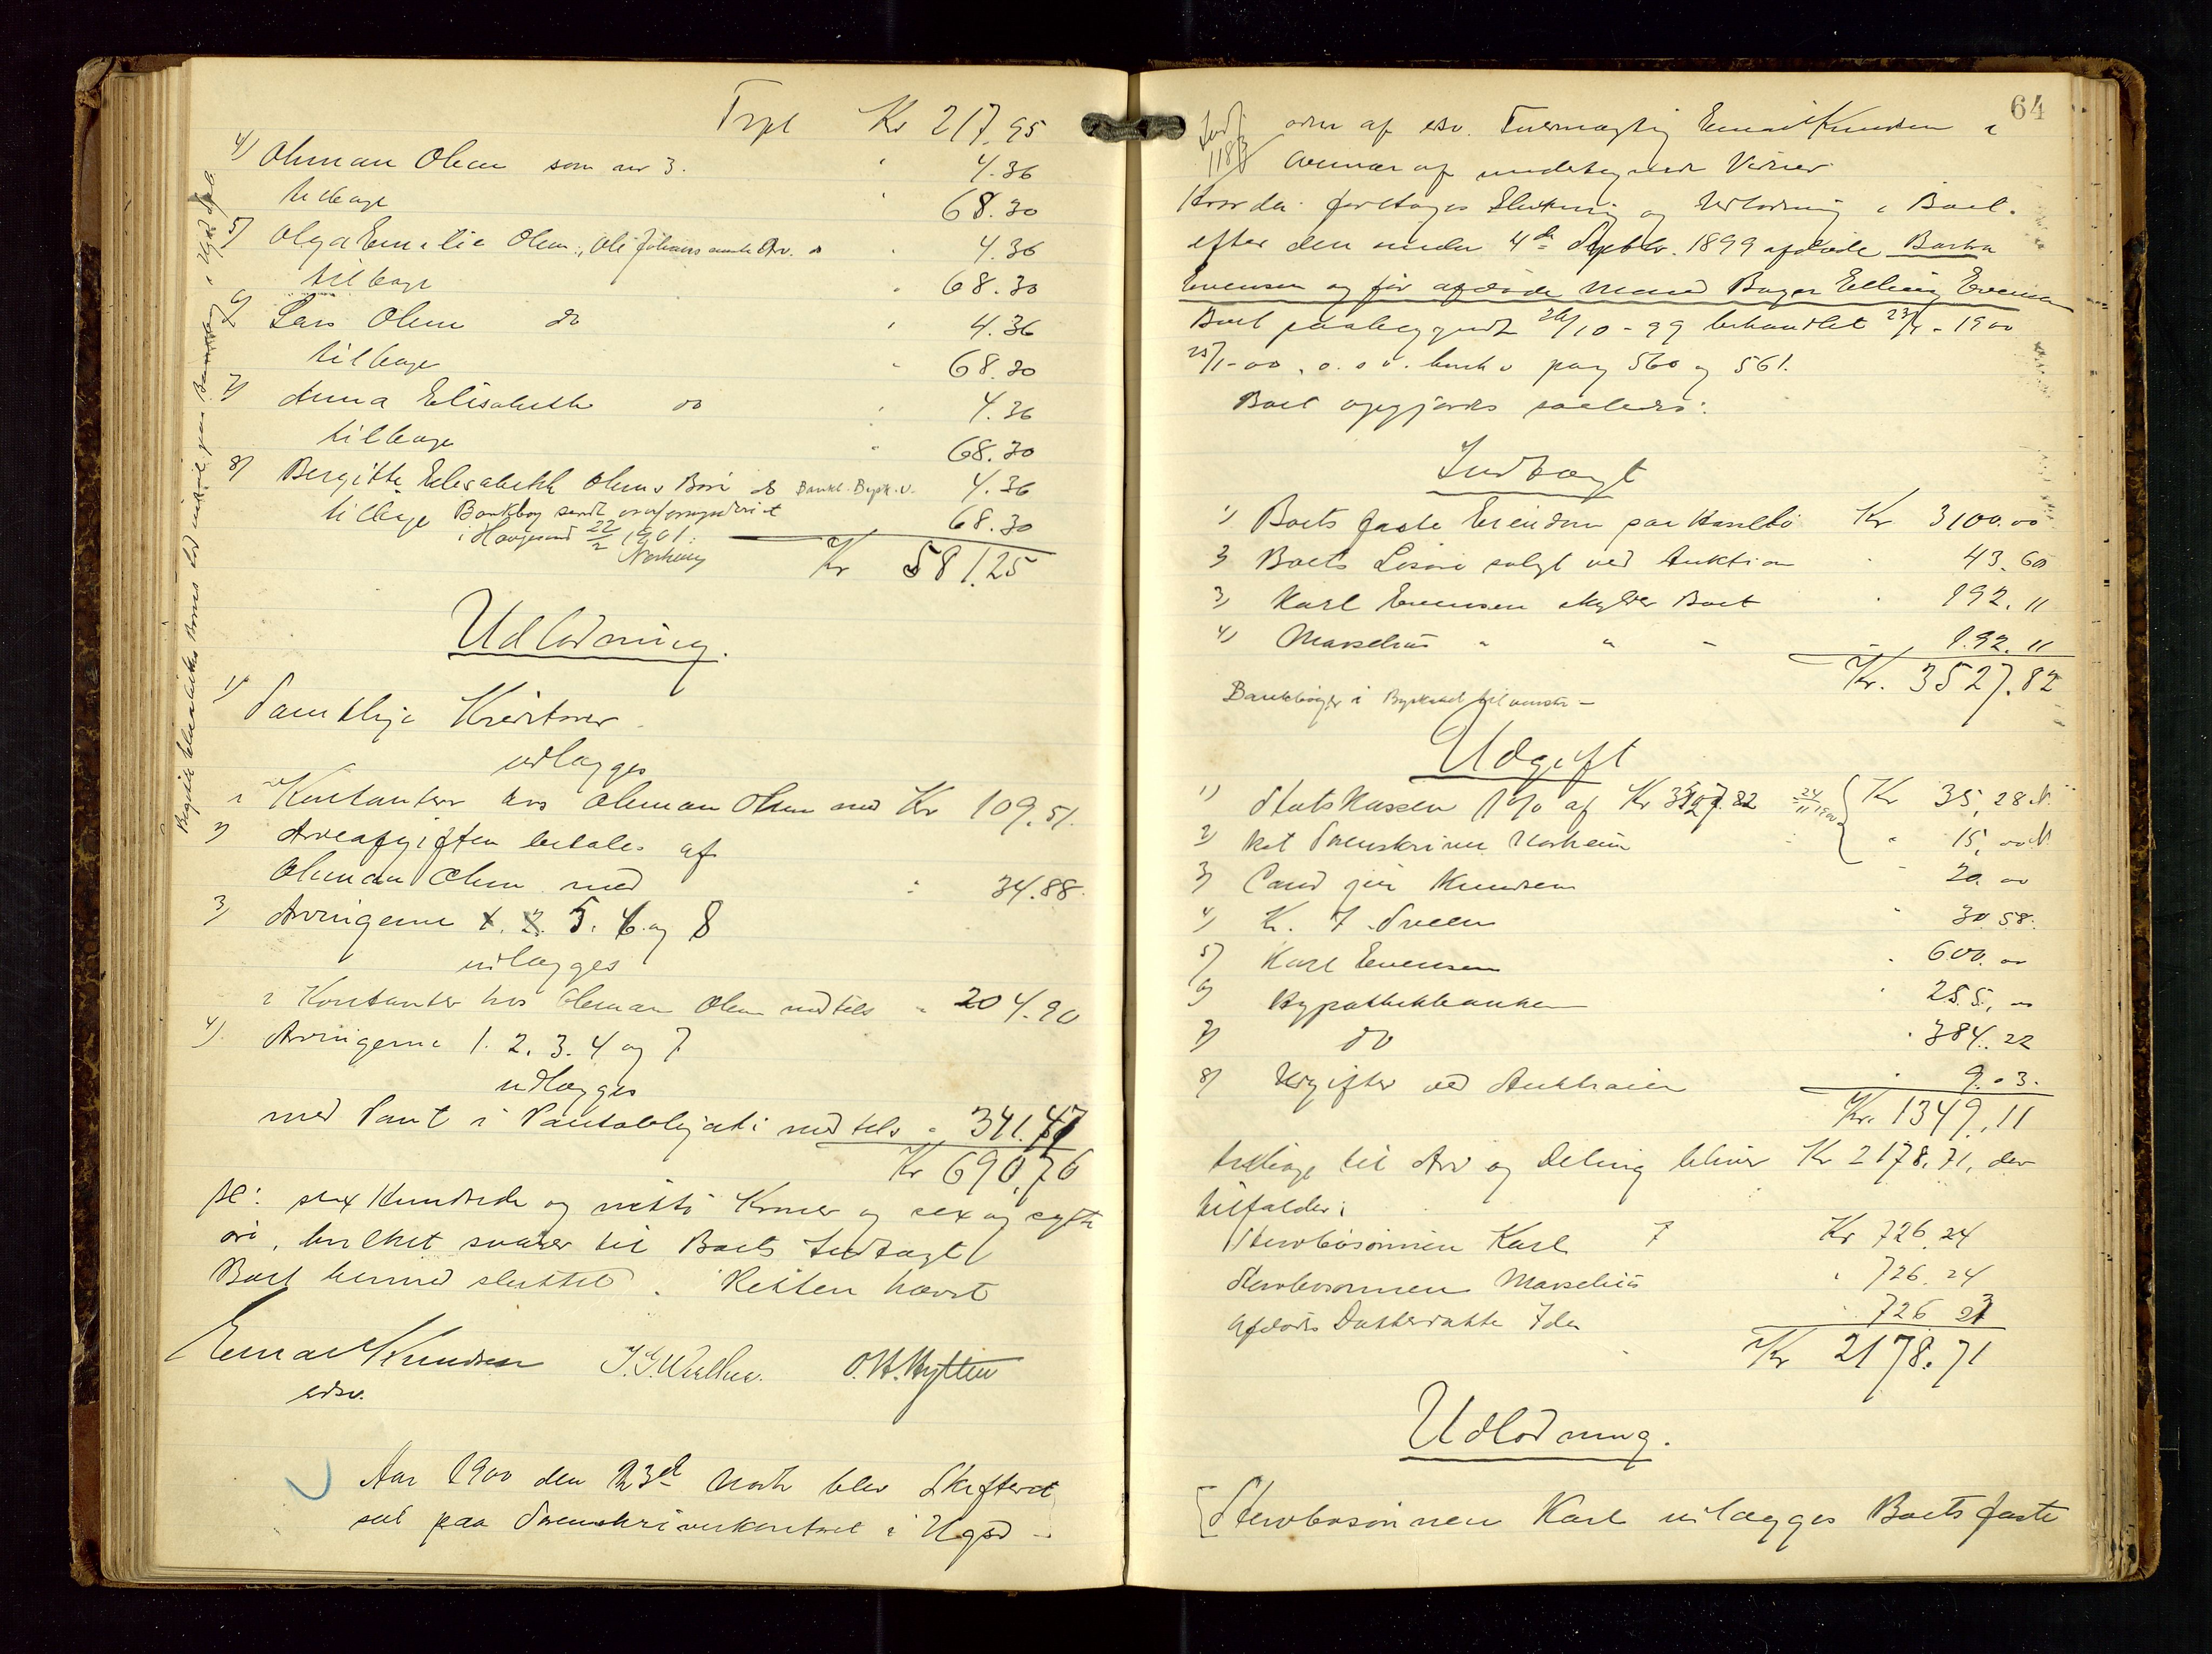 Trpt Kr 217.95
4) Ohman Olsen som nr 3. " 4.36
tilbage " 68.30
5) Olga Emilie Olsen, Ole Johans datter Arv. do " 4.36
tilbage " 68.30
6) Lars Olsen do " 4.36
tilbage " 68.30
7) Anna Elisabeth do " 4.36
tilbage " 68.30
8) Bergitte Elisabeth Olsens Børn do Bankb. Bysk. v. 4.36
tilbage Bankbog sendt 68.30
i Haugesund 22/2 1901.
Norheim
Kr 581.25
Udlodning.
1) Samtlige Kreditorer
udlægges
i Kontanter hos Ohman Olsen med Kr 109.51.
2) Arveafgiften betales af
Ohman Olsen med " 34.88
3) Arvingerne 5. 6. og 8
udlægges
i Kontanter hos Ohman Olsen med tils " 204.90
4) Arvingerne 1. 2. 3. 4 og 7
udlægges
med Pant i Pantobligati med tils " 341.47
Kr 690,76
sex Hundrede og nitti Kroner og sex og sytti
øre, hvilket svarer til Boets Indtægt
Boet hermed sluttet. Retten hævet
Einar Knudsen J.G. Wallus. O.H. Hytten
edsv.
Aar 1900 den 23d Novbr blev Skifteret
sat paa Sorenskriverkontoret i Ugsd
64
af edsv. Fuldmægtig Einar Knudsen i
Overvær af undertegnede Vidner
Hvorda foretoges Slutning og Udlodning i Boet
efter den under 4de Septbr. 1899 afdøde Barbra
Evensen og før afdøde Mand Bager Elling Evensen
Boet paabegyndt 26/10 - 99 behandlet 23/1 - 1900
25/1-00, o. s. v. pag 560 og 561.
Boet opgjordes saaledes:
Indtægt
1) Boets faste Eiendom paa Hasseløi Kr 3100.00
2) Boets Løsøre solgt ved Auktion " 43.60
3) Karl Evensen skylder Boet " 192.11
4) Marselius " " " " 192.11
Kr. 3527.82
Bankbøger i Byskabet til venstre -
Udgift
1) Statskassen 1% af Kr 3527.82 24/11 1900 Kr 35,28 N.
2) Kst Sorenskriver Norheim " 15,00 N.
3) Cand jur Knudsen " 20.00
4) K. J. Sveen " 30.58.
5) Karl Evensen " 600.00
6) Hypothekbanken " 255,00
7) do " 384.22
8) Udgifter ved Auktionen " 9.03.
Kr. 1349.11
tilbage til Arv og Deling bliver Kr 2178.71, der
tilfalder:
Stervbosønnen Karl Kr 726.24
Stervbosønnen Marselius " 726.24
Afdøde Datterdatter Ida " 726 23
Kr 2178.71
Udlodning.
Stervbosønnen Karl udlægges Boets faste